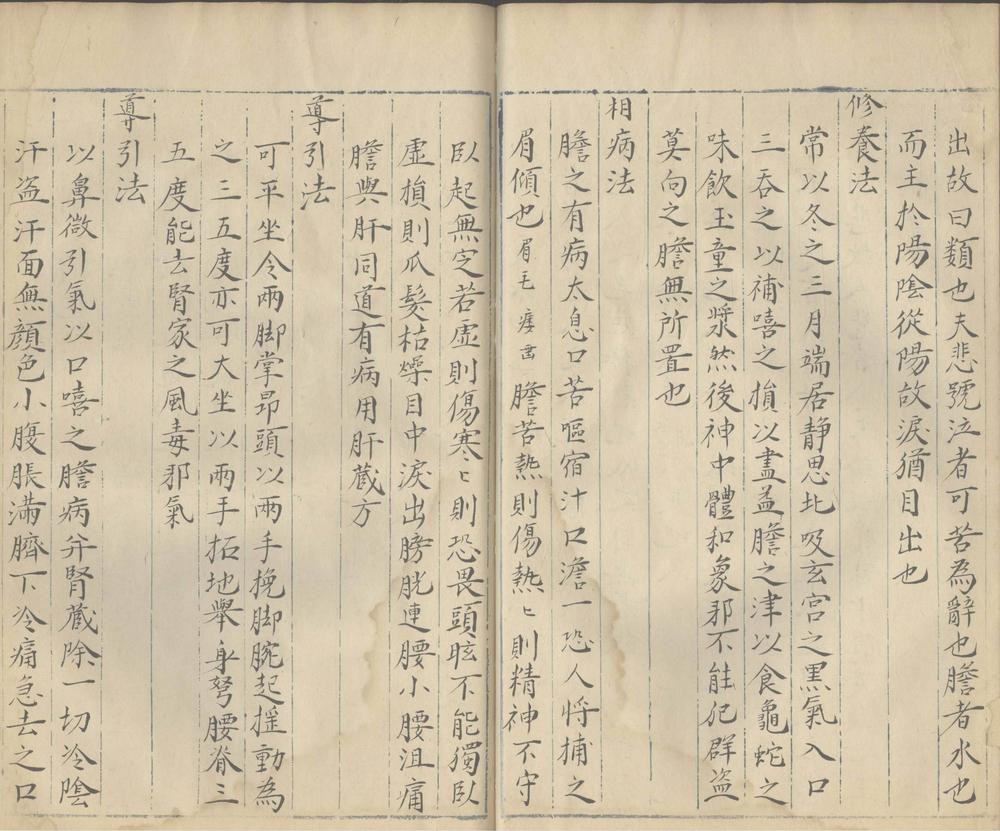 出故曰類也夫悲號泣者可苦為辭也膽者水也
而主於陽陰從陽故淚猶目出也
修養法
常以冬之三月端居靜思北吸玄宮之黑氣入口
三吞之以補嘻之損以盡益膽之津以食龜蛇之
味飲玉童之漿然後神中體和衆邪不能犯群盜
莫向之膽無所置也
相病法
膽之有病太息口苦嘔宿汁口澹一恐人将捕之
眉傾也眉毛 膽苦熱則傷熱〻則精神不守
臥起無定若虛則傷寒〻則恐畏頭眩不能獨臥
虛損則爪髮枯燥目中淚出膀胱連腰小腰沮痛
膽與肝同道有病用肝藏方
導引法
可平坐令兩脚掌昂頭以兩手挽脚腕起摇動為
之三五度亦可大坐以兩手拓地舉身弩腰脊三
五度能去腎家之風毒邪氣
導引法
以鼻微引氣以口嘻之膽病并腎藏除一切冷陰
汗盗汗面無顔色小腹脹滿臍下冷痛急去之口